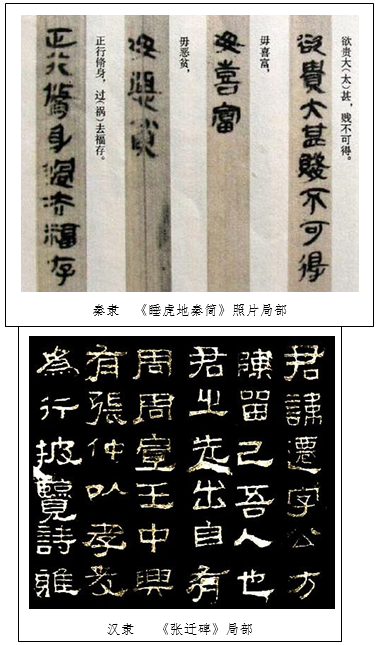 欲贵大(太)甚，贱不可得。
欲貴大甚賤不可得
毋喜富，
毋喜富
毋恶贫，
毋惡貧
正行脩身，过(祸)去福存。
正行脩身過去福存
秦隶 《睡虎地秦简》照片局部
君諱遷字公方
陳留己吾人也
君之先出自有
周周宣王中興
有張仲以孝友
為行披覽詩雅
汉隶 《张迁碑》局部